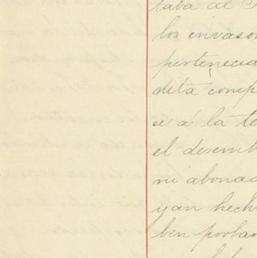 taba al
los invaso
pertenecia
dita comp
se á la te
el desemb
ni abonad
yan hech
ben proba